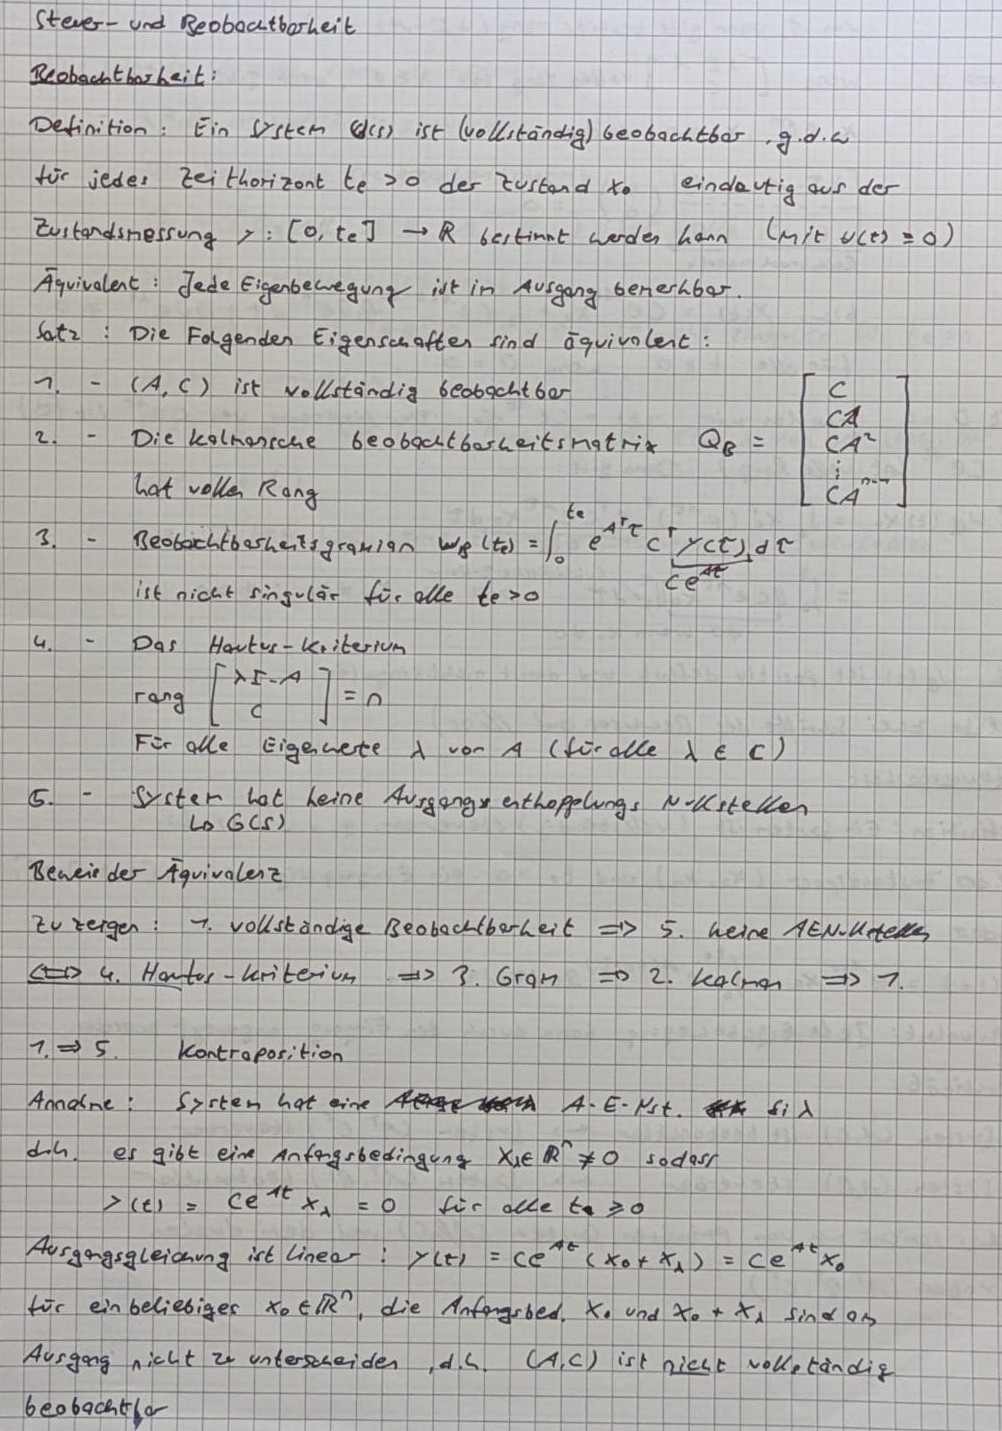 Steuer- und Beobachtbarkeit
Beobachtbarkeit:
Definition: Ein System G(s) ist (vollständig) beobachtbar, g.d.w
für jedes Zeithorizont te > 0 der Zustand x₀ eindeutig aus der
Zustandsmessung y: [0, te] → R bestimmt werden kann (mit u(t) = 0)
Äquivalent: Jede Eigenbewegung ist in Ausgang bemerkbar.
Satz: Die Folgenden Eigenschaften sind äquivalent:
1. - (A, C) ist vollständig beobachtbar
2. - Die Kalmansche beobachtbarkeitsmatrix Q_B = [C; CA; CA²; ⋮; CAⁿ⁻¹]
hat vollen Rang
3. - Beobachtbarkeitsgramian W_B(te) = ∫₀^te e^{Aᵀτ} Cᵀ y(τ) dτ
Ce^{At}
ist nicht singulär für alle te > 0
4. - Das Hautus-Kriterium
rang [λI-A; C] = n
Für alle Eigenwerte λ von A (für alle λ ∈ C)
5. - System hat keine Ausgangsentkopplungs Nullstellen
↳ G(s)
Beweis der Äquivalenz
Zu zeigen: 1. vollständige Beobachtbarkeit ⟹ 5. keine AENullstellen
⟺ 4. Hautus-Kriterium ⟹ 3. Gram ⟹ 2. Kalman ⟹ 1.
1. ⟹ 5. Kontraposition
Annahme: System hat eine A-E-Nst. si λ
d.h. es gibt eine Anfangsbedingung x_λ ∈ ℝⁿ ≠ 0 sodass
y(t) = Ce^{At} x_λ = 0 für alle t ≥ 0
Ausgangsgleichung ist linear: y(t) = Ce^{At} (x₀ + x_λ) = Ce^{At} x₀
für ein beliebiges x₀ ∈ ℝⁿ, die Anfangsbed. x₀ und x₀ + x_λ sind am
Ausgang nicht zu unterscheiden, d.h. (A,C) ist nicht vollständig
beobachtbar